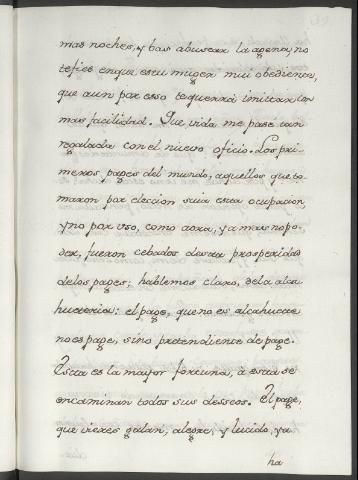 mas noches, y bas abuscar la agena, no
tefies enque estu muger mui obediente,
que aun por esso tequerrá imittar con
mas facilidad. Que vida me pasé tan
regalada con el nuevo oficio. Los pri-
meros pages del mundo, aquellos que to-
maron por eleccion suia esta ocupacion
y no por uso, como aora, y a mas no po-
der, fueron cebados desta prosperidad
delos pages; hablemos claro, dela alca
hueteria: el page, que no es alcahuete
no es page, sino pretendiente de page.
Esta es la mayor fortuna, à esta se
encaminan todos sus desseos. El page,
que vieres galan, alegre, y lucido, ya
ha